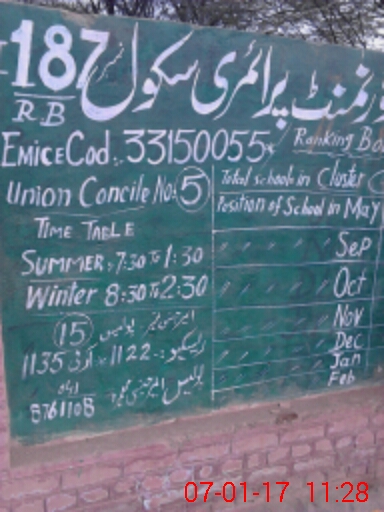 گورنمنٹ پرائمری سکول نمبر 187
RB
EmiceCod:. 33150055
Ranking Bo
Union Concile No: 5
Total schools in Cluster
Position of School in May
TIME TABLE
" " " " Sep
SUMMER: 7:30 To 1:30
" " " " Oct
Winter 8:30 To 2:30
" " " " Nov
ایمرجنسی نمبر پولیس 15
" " " " Dec
ریسکیو:. 1122 1135
" " " " Jan
Feb
پولیس ایمرجنسی 8761108
07-01-17 11:28